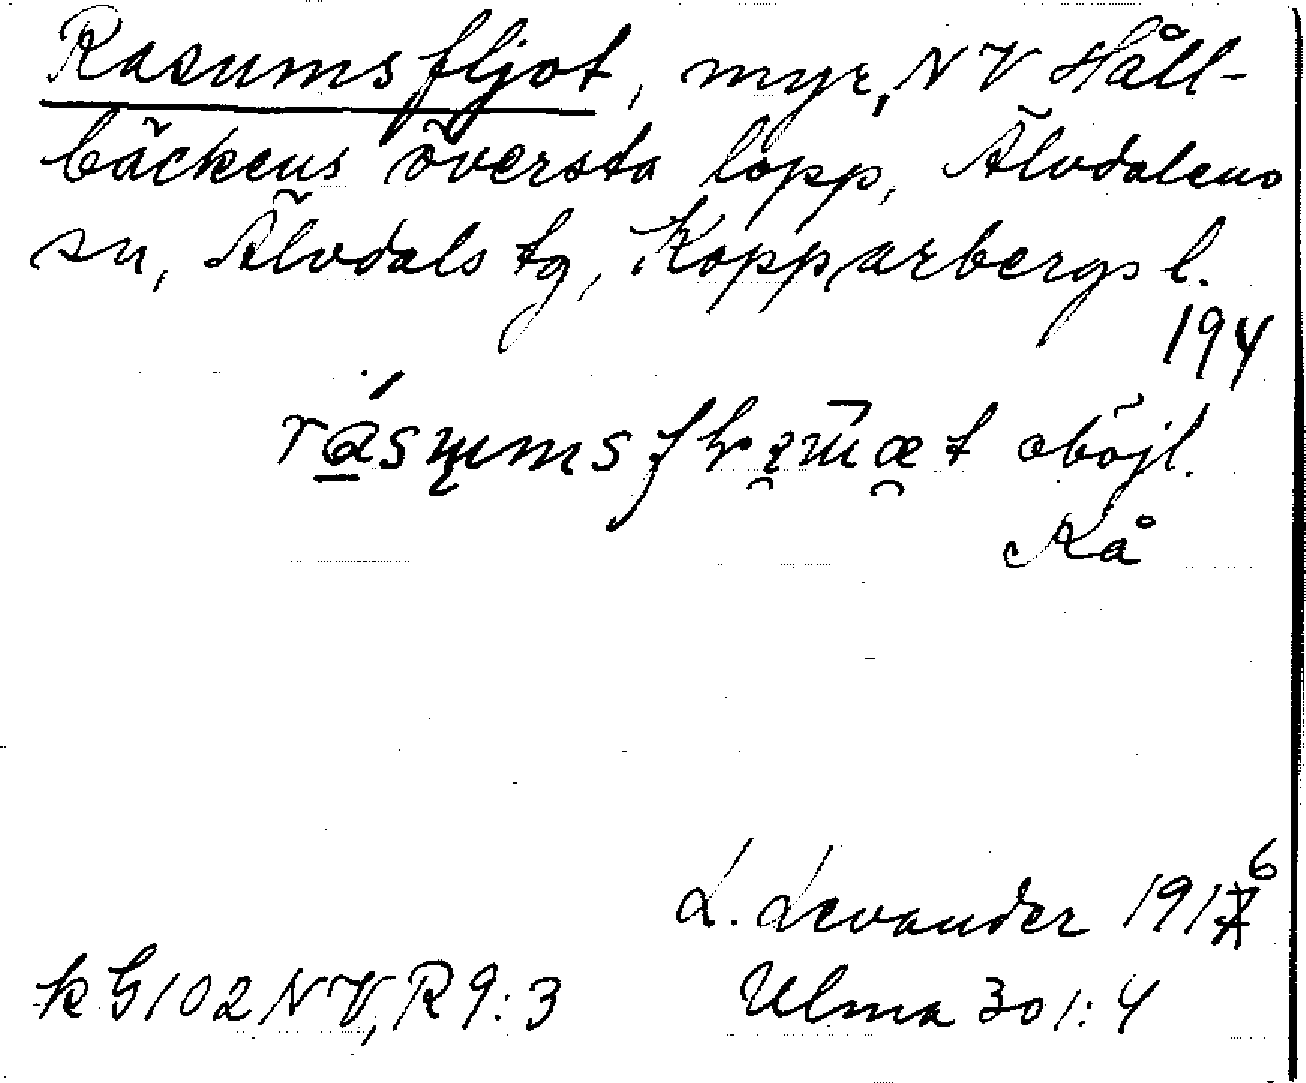 Rasumsfljot, myr, NV Håll-
bäckens översta lopp, Älvdalens
sn, Älvdals tg, Kopparbergs l.
194
oböjl.
Kå
L. Levander 1916
kG102NV, R9:3
Ulma 301:4